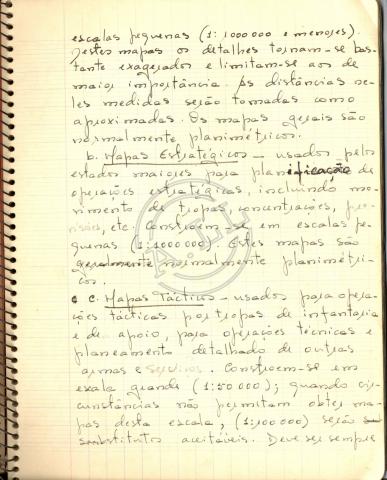 escalas pequenas (1:1000000 e menores).
Nestes mapas os detalhes tornam-se bas-
tante exagerados e limitam-se aos de
maior importância. As distâncias ne-
les medidas serão tomadas como
aproximadas. Os mapas gerais são
normalmente planimétricos.
b. Mapas Estratégicos - usados pelos
estados maiores para planificação de
operações estratégicas, incluindo mo-
vimento de tropas, concentrações,
etc. Constroem-se em escalas pe-
quenas (1:1000000). Estes mapas são
geralmente normalmente planimétri-
cos.
c. Mapas Tácticos - usados para opera-
ções tácticas por tropas de infantaria
e de apoio, para operações técnicas e
planeamento detalhado de outras
armas e serviços. Constroem-se em
escala grande (1:50000); quando cir-
cunstâncias não permitam obter ma-
pas desta escala, (1:100000) serão
substitutos aceitáveis. Deve ser sempre